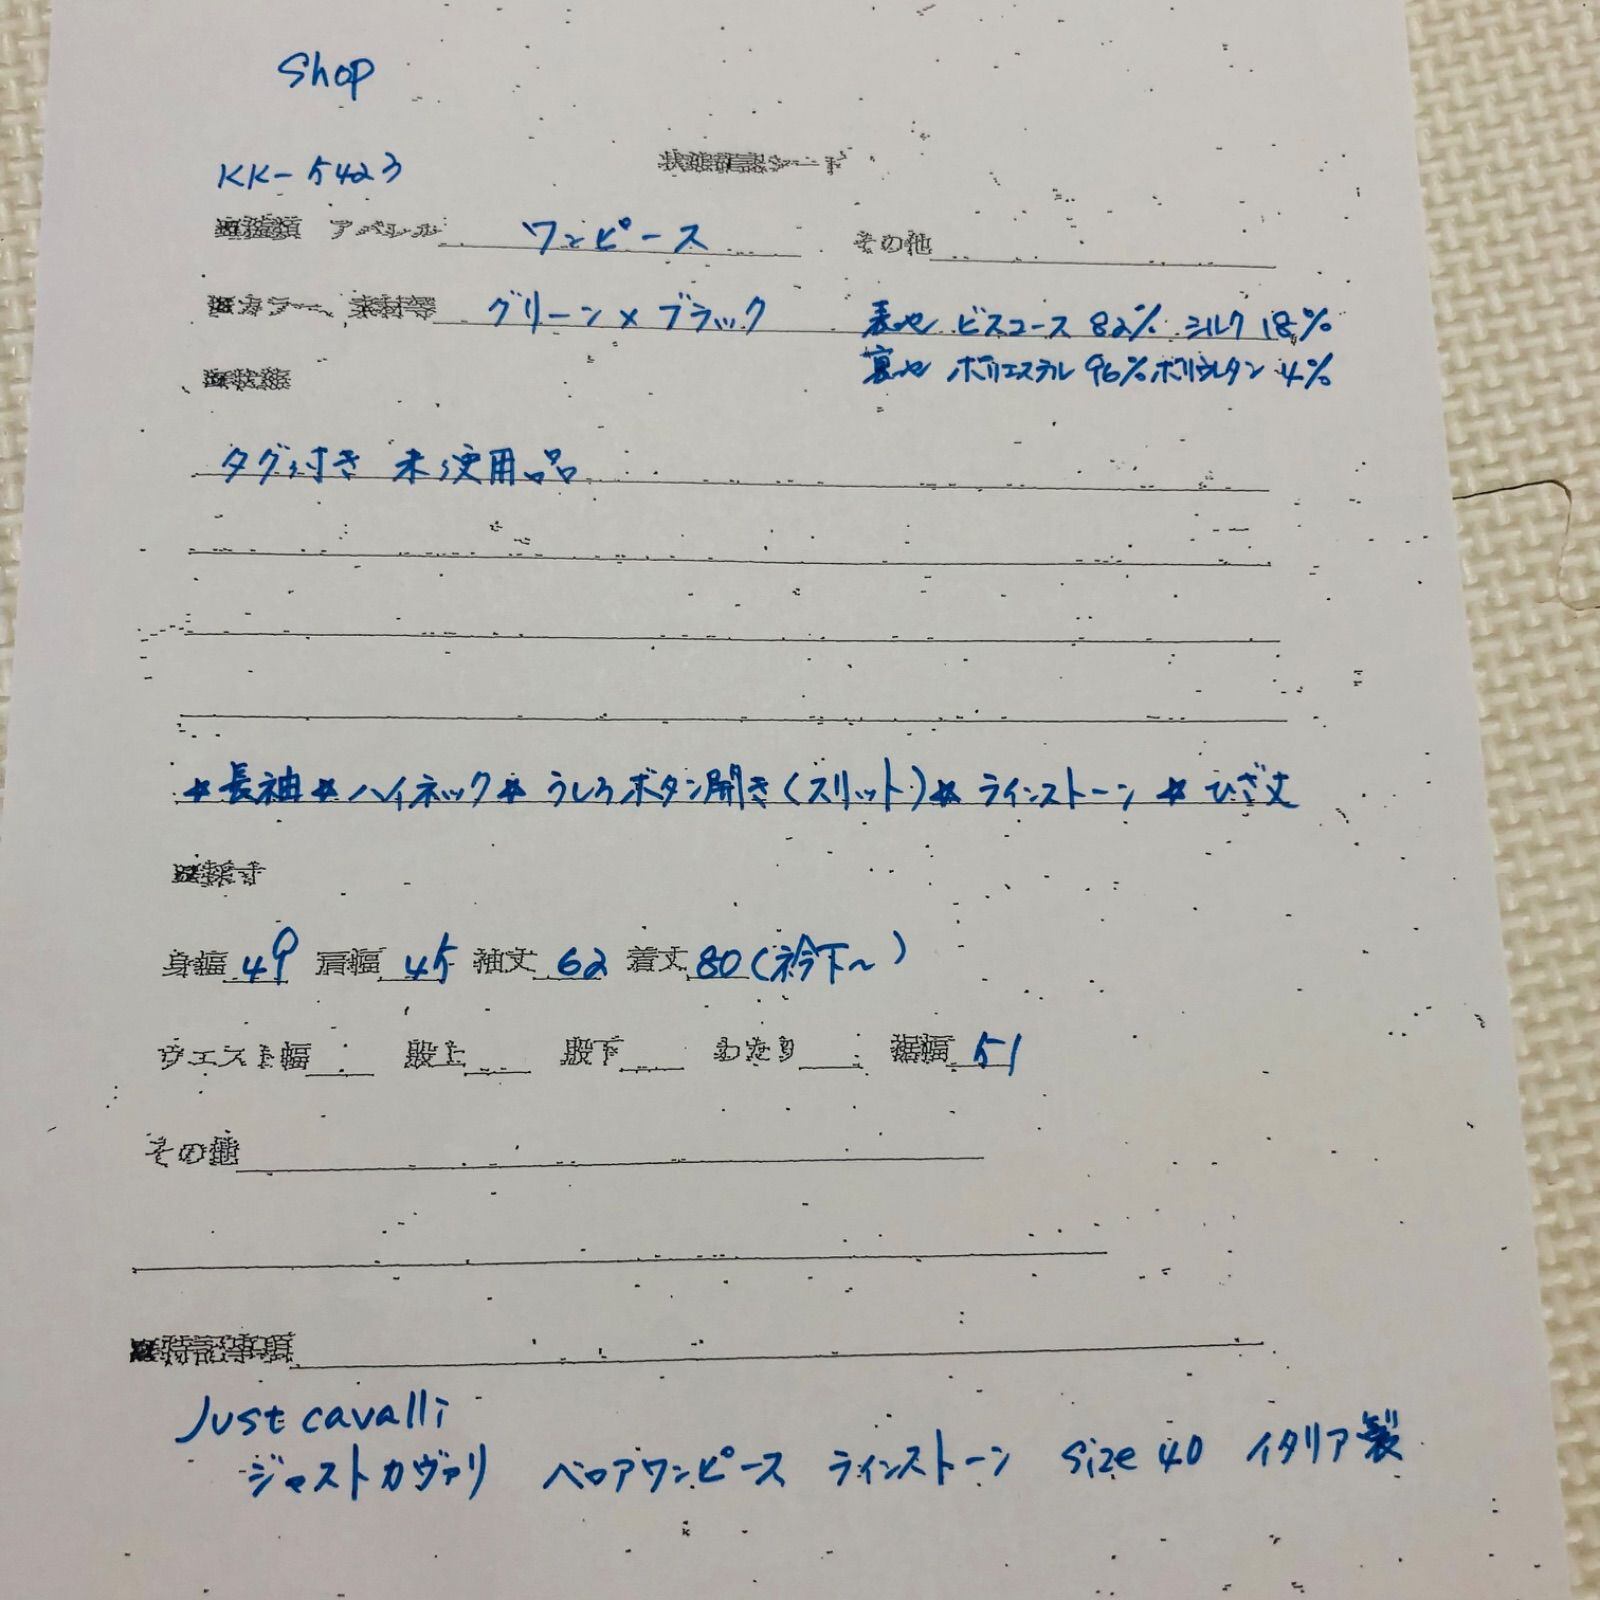 Shop
KK-5423 状態確認シート
■種類 アパレル ワンピース その他
■カラー、素材等 グリーン×ブラック 表地 ビスコース 82% シルク 18%
裏地 ポリエステル 96% ポリウレタン 4%
■状態
タグ付き 未使用品
*長袖*ハイネック*うしろボタン開き(スリット)*ラインストーン *ひざ丈
■採寸
身幅 49 肩幅 45 袖丈 62 着丈 80(衿下~)
ウエスト幅 股上 股下 わたり 裾幅 51
その他
■特記事項
Just cavalli
ジャストカヴァリ ベロアワンピース ラインストーン size 40 イタリア製